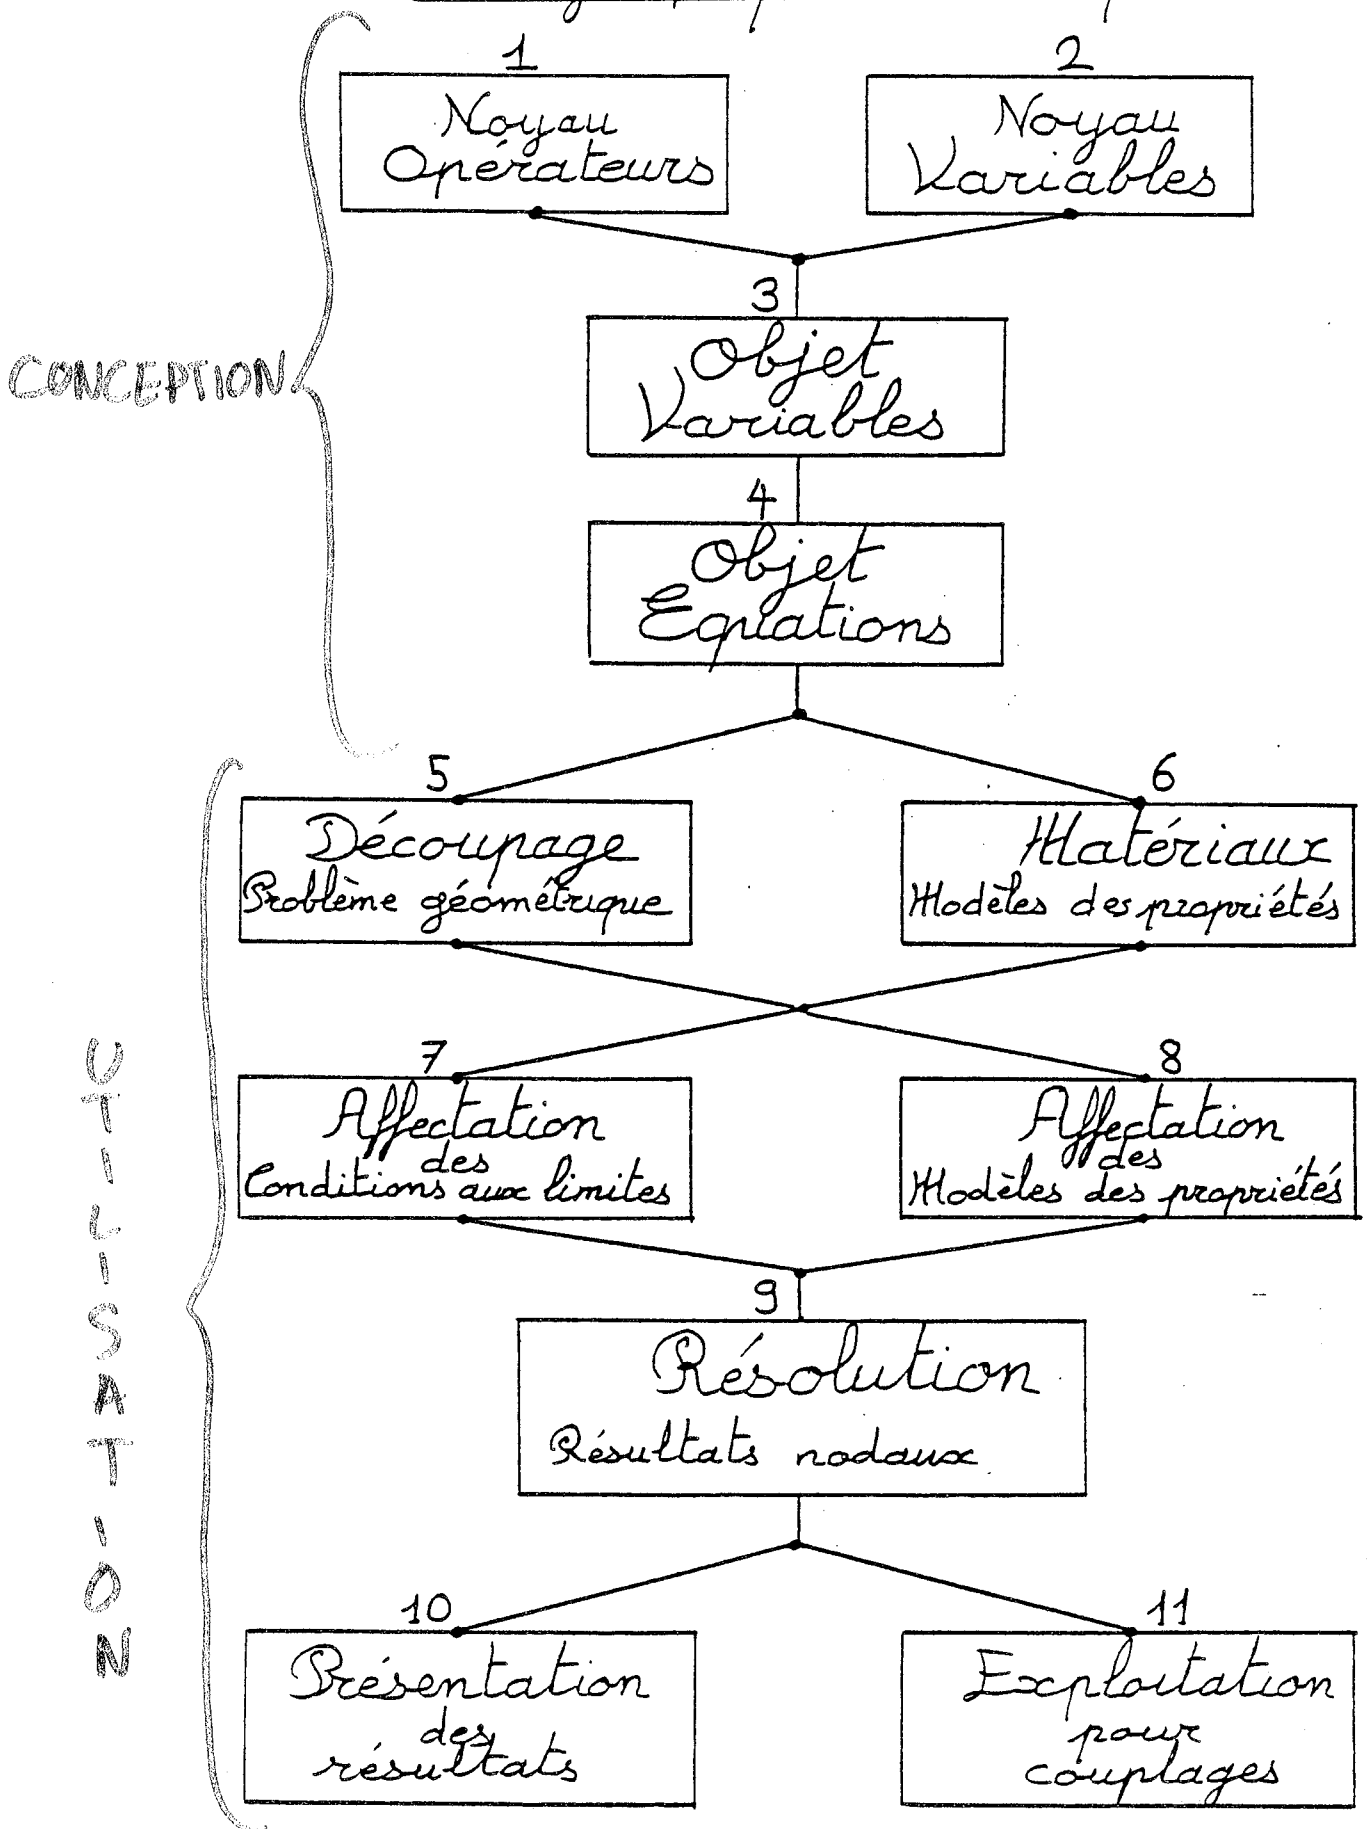 1
Noyau
Opérateurs
2
Noyau
Variables
CONCEPTION
3
Objet
Variables
4
Objet
Equations
UTILISATION
5
Découpage
Problème géométrique
6
Matériaux
Modèles des propriétés
7
Affectation
des
Conditions aux limites
8
Affectation
des
Modèles des propriétés
9
Résolution
Résultats nodaux
10
Présentation
des
résultats
11
Exploitation
pour
couplages